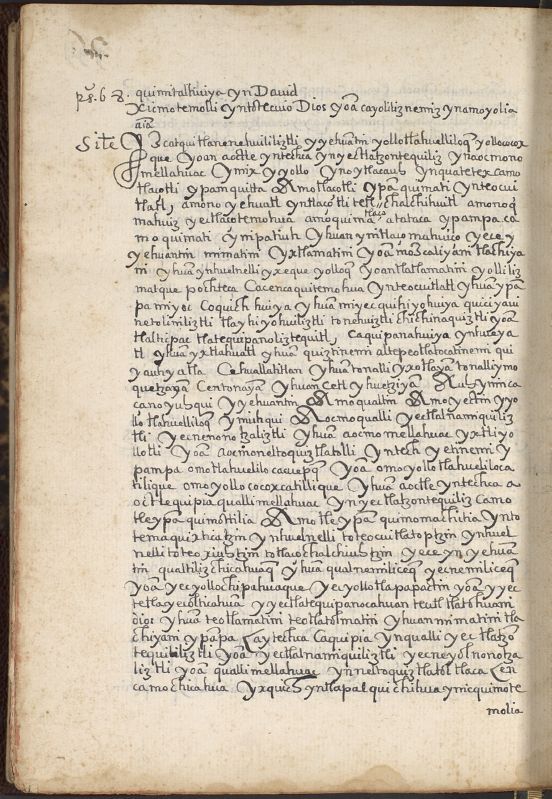 quimitalhuiya yn David
ps. 68. Xicmotemolli yntotecuio Dios yoā cayoliliz nemiz ynamoyolia
aīa
Site Yzcatqui tlanenehuililiztli yyehuātin yollotlahuelliloq̄ yollococox
que yoan aoctle yntechca ynyectlatzontequiliz ynaocmono
mellahuac ymix yyollo ynoytlacauh ynquatetex camo
tlacotli ypan quitta Amotlacotli ypā quimati ynteocui
tlatl, amono yehuatl yntlaçotli tetl chalchihuitl amonoq̄
mahuiz yectlacotemohua amoquima tlaço atataca ypampa ca
mo quimati ynipatiuh yhuan ynitlaçomahuiço yece y
yehuantin mimatini yxtlamatini yoā mozcaliyani tlachiya
ni yhuā ynhuelnelli yxeque yolloq̄ yoantlatlamatini yolliliz
matque pochteca Cacenca quitemohua ynteocuitlatl yhuā ypā
pa miyec Coquich huiya yhuā miyec quihiyohuiya qucciyaui
netoliniliztli tlayhiyohuiliztli tonehuiztli chichinaquiztli yoā
tlalticpac tlatequipanoliztequitl, caquipanahuiya ynhueya
tl yhuā yxtlahuatl yhuā quiztinemi altepetlatocatinemi qui
yauhyatla Cehuallatitlan yhua tonalli yxotlayā tonalliymo
quetzayā Centonayā yhuan Cetl yhuetziyā Auh ynin ca
canoyuhqui yyehuantin Amo qualtin Amo yectin yyo
llotlahuelliloq̄ ymihqui Aocmo qualli yectlalnamiquiliz
tli yecnenonotzaliztli yhuā aocmo mellahuac yxtliyo
llotli yoā aocmoneltoquiztlatolli yntech yetinemi y
pampa omotlahuelilocacuepq̄ yoā omoyollotlahueliloca
tilique omoyollococoxcatillique yhuā aoctle yntechca a
octle quipia qualli mellahuac ynyectlatzontequiliz camo
tle ypā quimottilia Amotle ypā quimomachitia ynto
temaquixticatzin ynhuelnelli toteocuitlatoptzin ynhuel
nelli toteoxiuhtzin totlaçochalchiuhtzin yece yn yehuā
tin qualtiliz chicahuaq̄ yhuā qualnemiliceq̄ yecnemiliceq̄
yoā yecyollochipahuaque yecyollotlapapactin yoā yyec
tetlayecoltiahua yyectlatequipanocahuan teutl tlatohuani
dios yhuā teotlamatini teotlatolmatini yhuan mimatini tla
chiyani ypāpa Caytechca Caquipia ynqualli yectlatzō
tequiliztli yoā yectlalnamiquiliztli yecneyolnonotza
liztli yoā qualli mellahuac ynneltoquiztlatoltlaca Cen
camochicahua yxquich yntlapal quichihua ynicquimote
molia